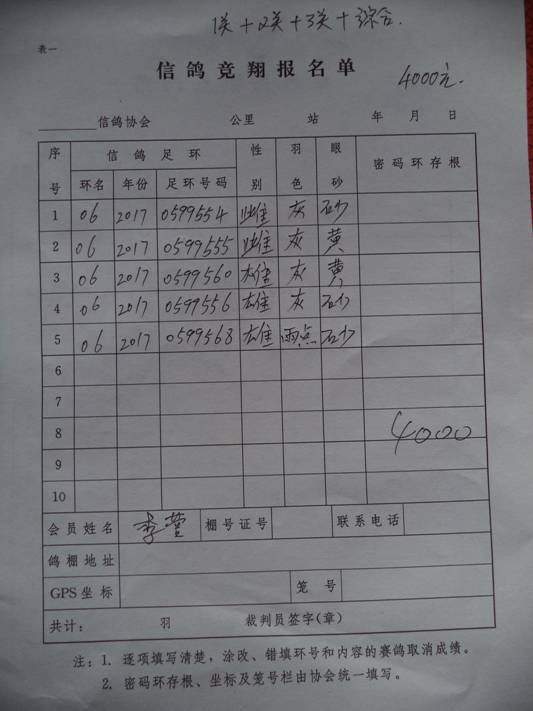 1关+2关+3关+综合.
表一
信鸽竞翔报名单
4000元.
信鸽协会 公里 站 年 月 日
序号 信鸽足环 性别 羽色 眼砂 密码环存根
环名 年份 足环号码
1 06 2017 0599554 雌 灰 砂
2 06 2017 0599555 雌 灰 黄
3 06 2017 0599560 雄 灰 黄
4 06 2017 0599556 雄 灰 砂
5 06 2017 0599568 雄 雨点 砂
6
7
8 4000
9
10
会员姓名 李莹 棚号证号 联系电话
鸽棚地址
GPS坐标 笼号
共计: 羽 裁判员签字(章)
注:1. 逐项填写清楚,涂改、错填环号和内容的赛鸽取消成绩。
2. 密码环存根、坐标及笼号栏由协会统一填写。